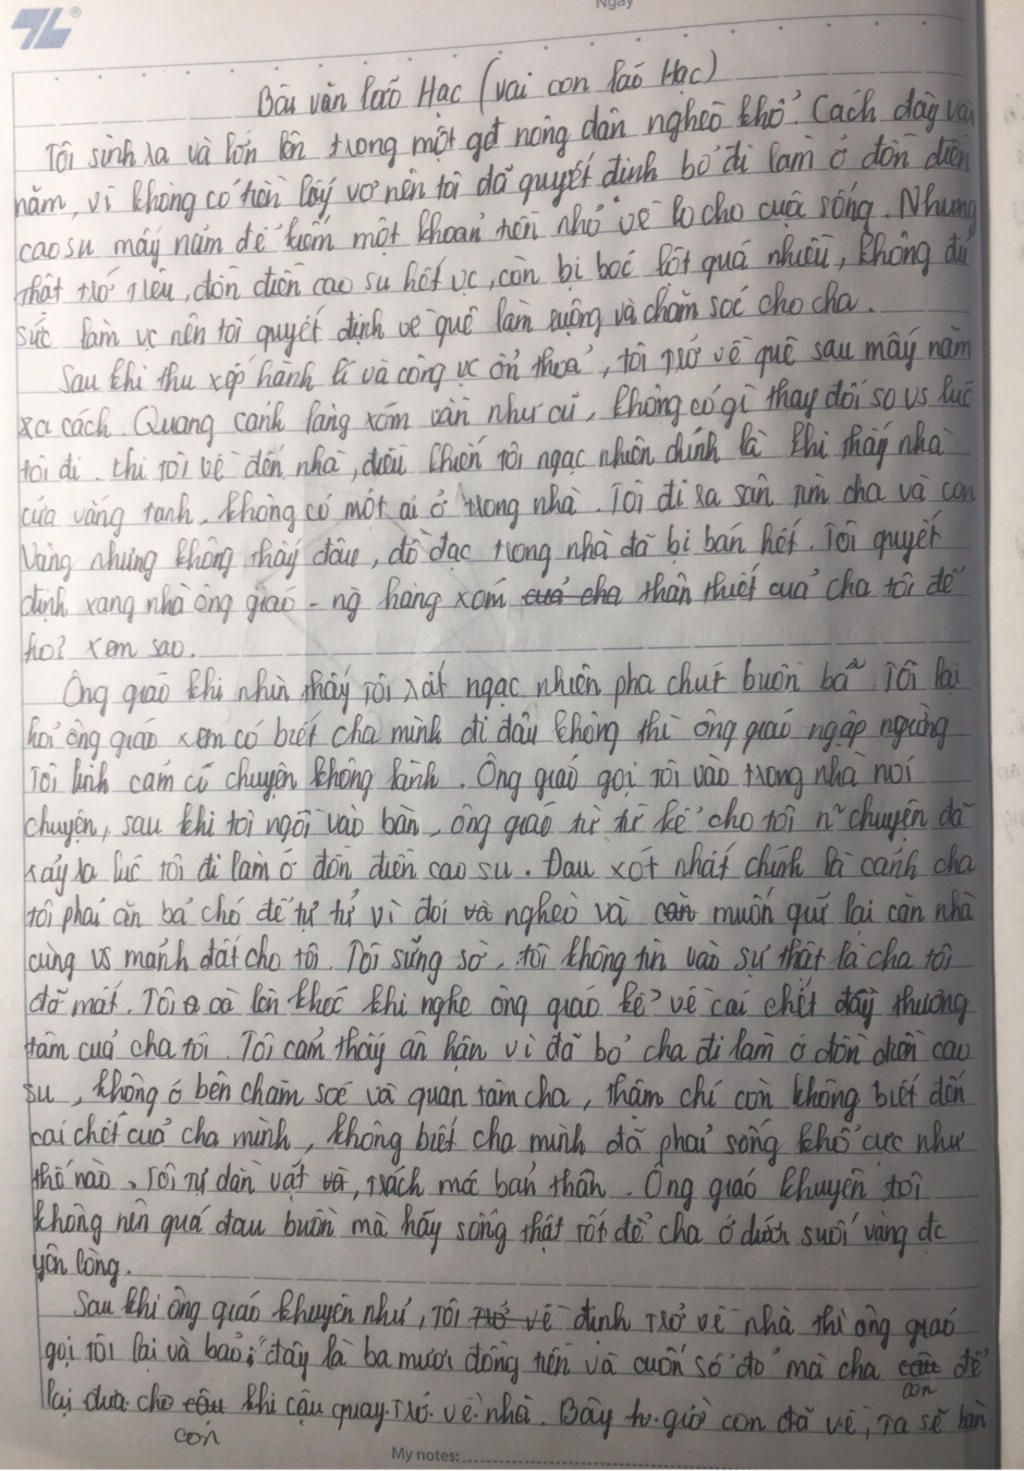 Ngày
Bài văn Lão Hạc (vai con Lão Hạc)
Tôi sinh ra và lớn lên trong một gđ nông dân nghèo khổ. Cách đây vài
năm, vì không có tiền lấy vợ nên tôi đã quyết định bỏ đi làm ở đồn điền
cao su mấy năm để kiếm một khoản tiền nhỏ về lo cho cuộc sống. Nhưng
thật trớ trêu, đồn điền cao su hết vc, còn bị bóc lột quá nhiều, không đủ
sức làm vc nên tôi quyết định về quê làm ruộng và chăm sóc cho cha.
Sau khi thu xếp hành lí và công vc ổn thoả, tôi trở về quê sau mấy năm
xa cách. Quang cảnh làng xóm vẫn như cũ, không có gì thay đổi so vs lúc
tôi đi. Khi tôi về đến nhà, điều khiến tôi ngạc nhiên chính là khi thấy nhà
cửa vắng tanh, không có một ai ở trong nhà. Tôi đi ra sân tìm cha và con
Vàng nhưng không thấy đâu, đồ đạc trong nhà đã bị bán hết. Tôi quyết
định xang nhà ông giáo - ng hàng xóm của cha thân thiết của cha tôi để
hỏi xem sao.
Ông giáo khi nhìn thấy tôi rất ngạc nhiên pha chút buồn bã. Tôi lại
hỏi ông giáo xem có biết cha mình đi đâu không thì ông giáo ngập ngừng
Tôi linh cảm có chuyện không lành. Ông giáo gọi tôi vào trong nhà nói
chuyện, sau khi tôi ngồi vào bàn, ông giáo từ từ kể cho tôi n~ chuyện đã
xảy ra lúc tôi đi làm ở đồn điền cao su. Đau xót nhất chính là cảnh cha
tôi phải ăn bả chó để tự tử vì đói và nghèo và căn muốn giữ lại căn nhà
cùng vs mảnh đất cho tôi. Tôi sững sờ, tôi không tin vào sự thật là cha tôi
đã mất. Tôi oà lên khóc khi nghe ông giáo kể về cái chết đầy thương
tâm của cha tôi. Tôi cảm thấy ân hận vì đã bỏ cha đi làm ở đồn điền cao
su, không ở bên chăm sóc và quan tâm cha, thậm chí còn không biết đến
cái chết của cha mình, không biết cha mình đã phải sống khổ cực như
thế nào. Tôi tự dằn vặt và, trách mắ bản thân. Ông giáo khuyên tôi
không nên quá đau buồn mà hãy sống thật tốt để cha ở dưới suối vàng đc
yên lòng.
Sau khi ông giáo khuyên như, tôi trở về định trở về nhà thì ông giáo
gọi tôi lại và bảo: "đây là ba mươi đồng tiền và cuốn sổ đỏ mà cha cậu để
con
lại đưa cho cậu khi cậu quay trở về nhà. Bây giờ con đã về, ta sẽ bàn
con
My notes: